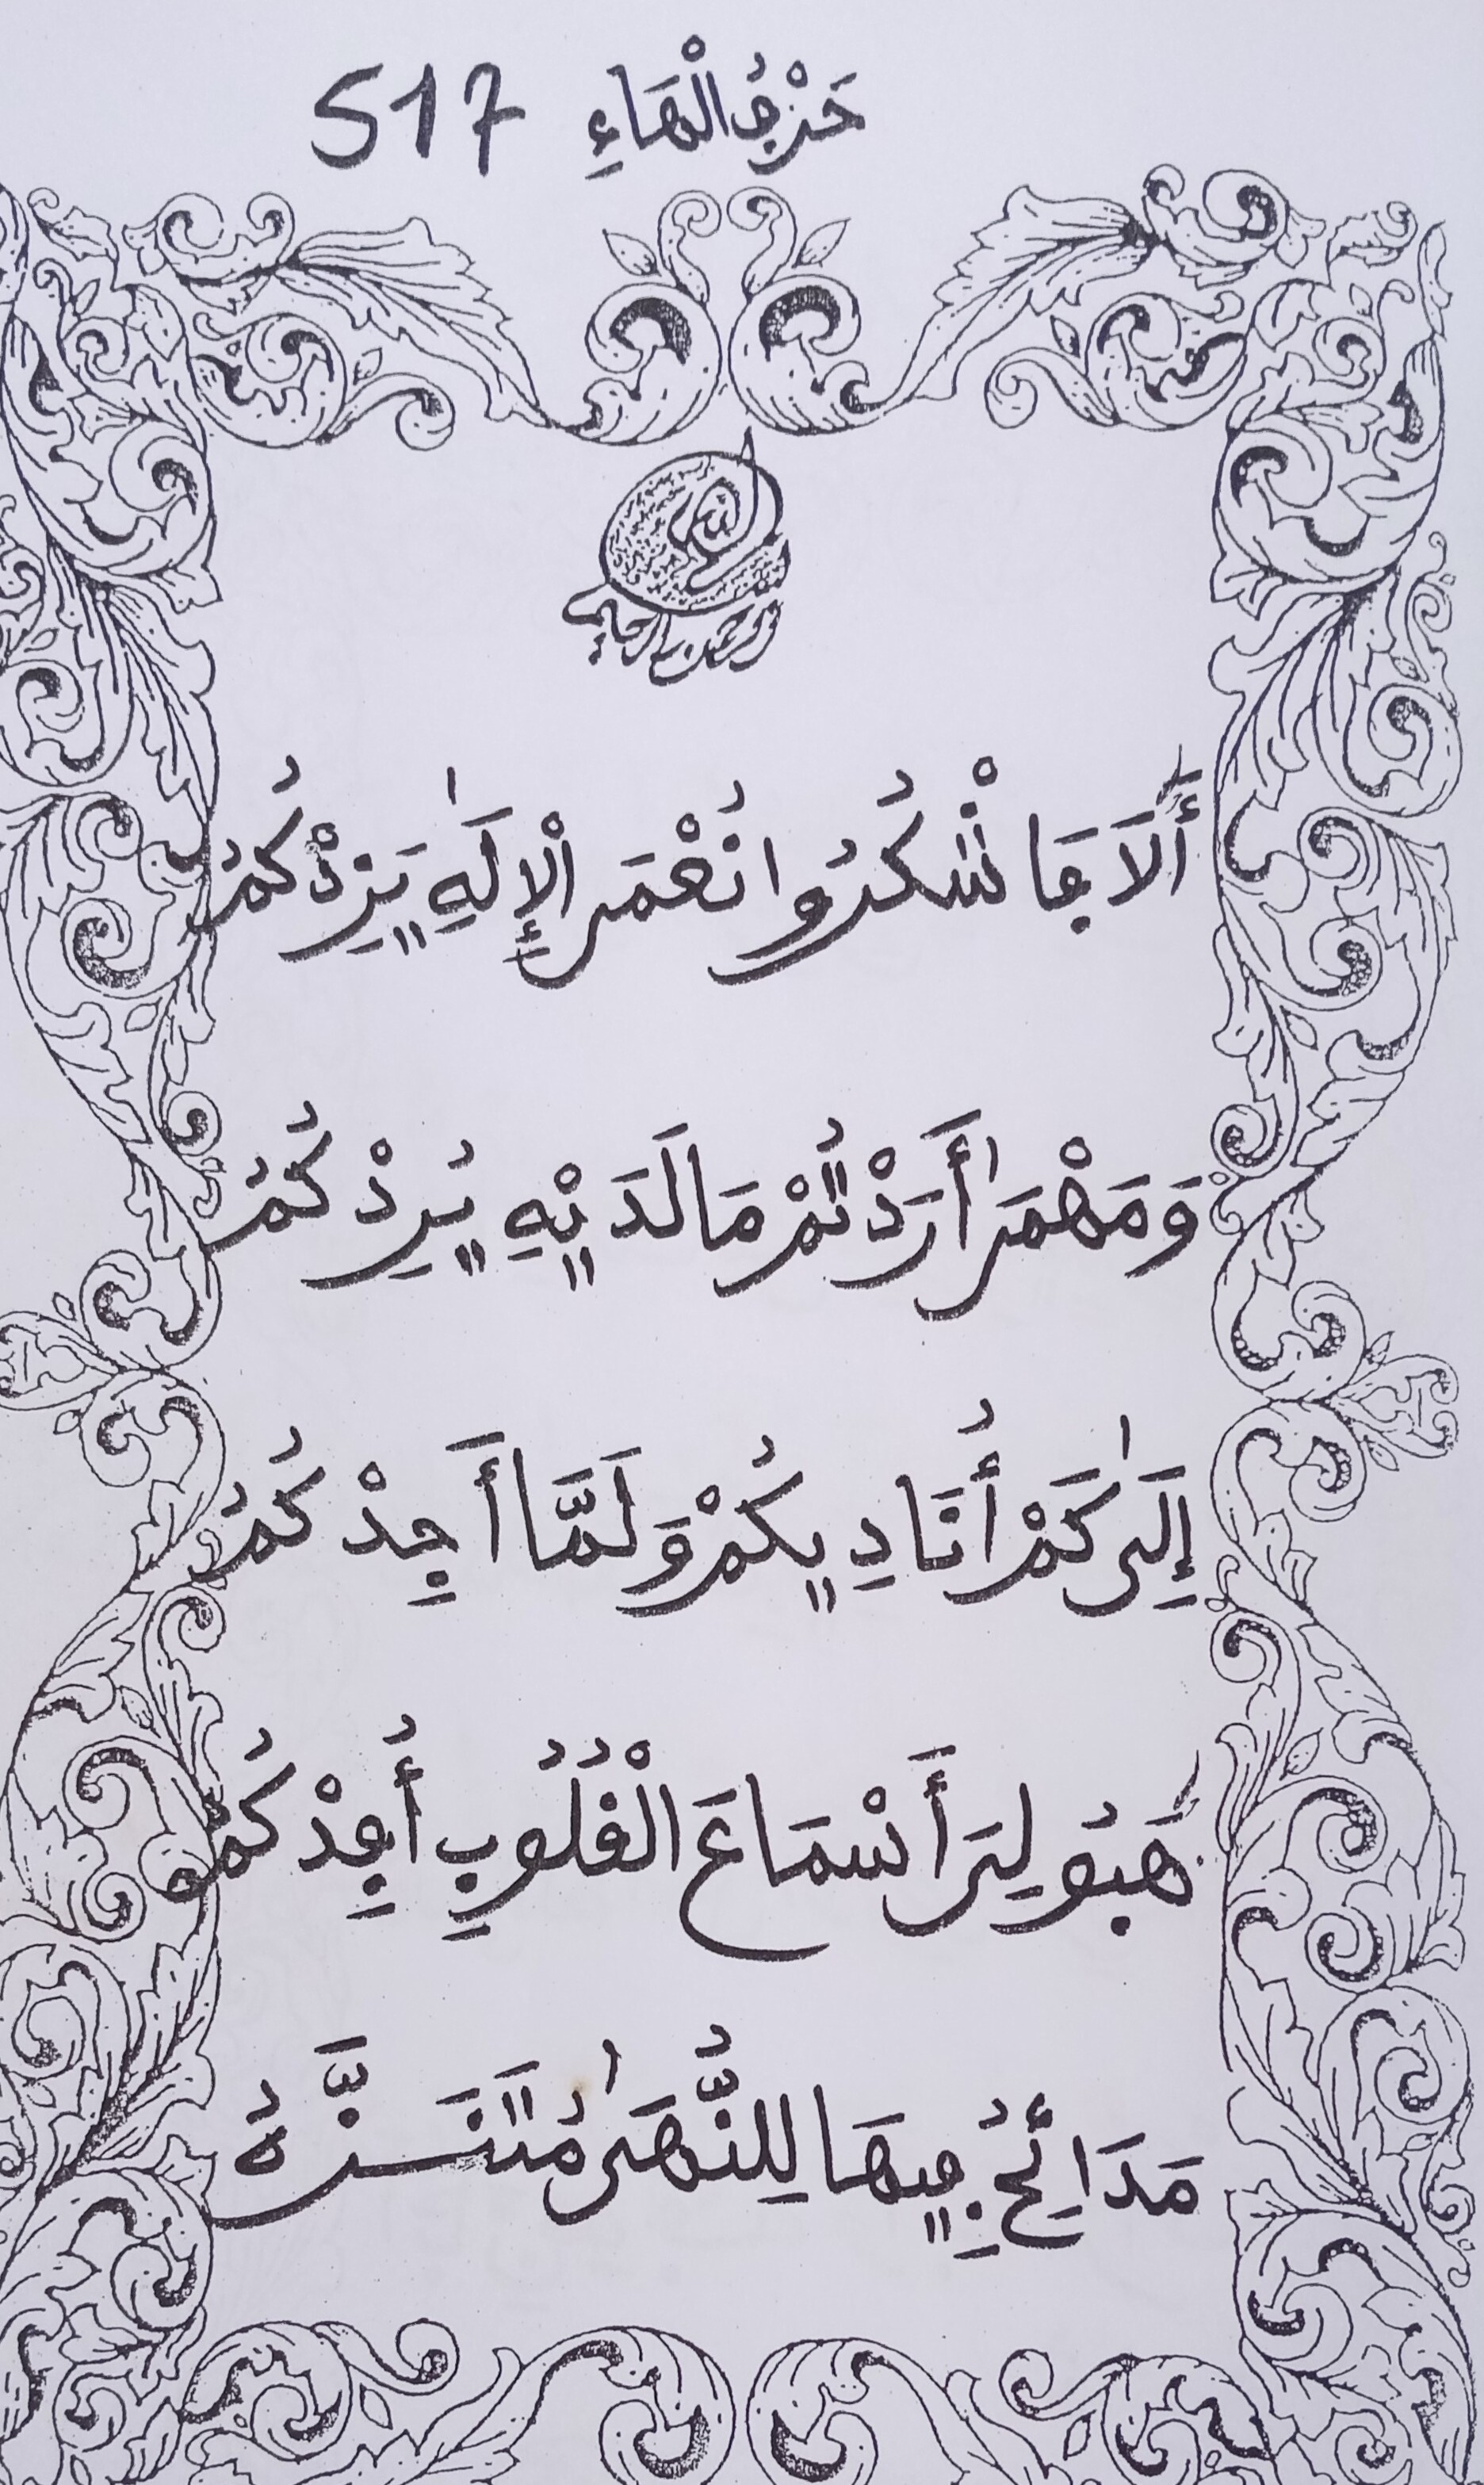 حَرْفُ الْهَاءِ 517
بسم الله الرحمن الرحيم
أَلَا فَاشْكُرُوا نُعْمَى الْإِلَٰهِ يَزِدْكُمُ
وَمَهْمَىٰ أَرَدْتُمْ مَا لَدَيْهِ يُرِدْكُمُ
إِلَىٰ كَمْ أُنَادِيكُمْ وَلَمَّا أَجِدْكُمُ
هَبُو لِيَ أَسْمَاعَ الْقُلُوبِ أُفِدْكُمُو
مَدَائِحُ فِيهَا لِلنُّهَىٰ مُتَنَزَّهُ